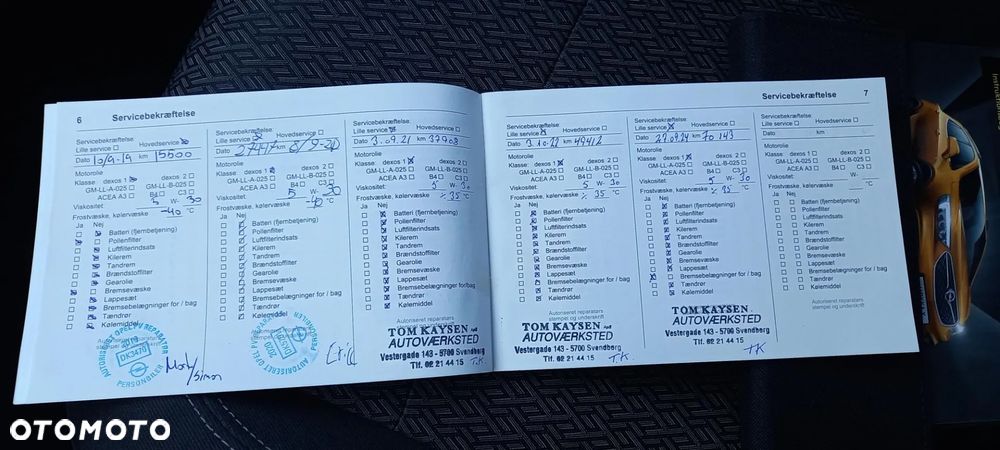 6 Servicebekræftelse
Servicebekræftelse:
Lille service Hovedservice
Dato 10/9-19 km 15600
Motorolie
Klasse: dexos 1 dexos 2
GM-LL-A-025 GM-LL-B-025
ACEA A3 B4 C3
Viskositet: 5 W- 30
Frostvæske, kølervæske -40 °C
Ja Nej
Batteri (fjernbetjening)
Pollenfilter
Luftfilterindsats
Kilerem
Tandrem
Brændstoffilter
Gearolie
Bremsevæske
Lappesæt
Bremsebelægninger for / bag
Tændrør
Kølemiddel
AUTORISERET OPEL REPARATØR
2019
DK3470
PERSONBILER
Servicebekræftelse:
Lille service Hovedservice
km 8/9-20
Motorolie
Klasse: dexos 1 dexos 2
GM-LL-A-025 GM-LL-B-025
ACEA A3 B4 C3
Viskositet: 5 W- 30
Frostvæske, kølervæske -40 °C
Ja Nej
Batteri (fjernbetjening)
Pollenfilter
Luftfilterindsats
Kilerem
Tandrem
Brændstoffilter
Gearolie
Bremsevæske
Lappesæt
Bremsebelægninger for / bag
Tændrør
Kølemiddel
2020
Servicebekræftelse:
Lille service Hovedservice
Dato 3.09.21 km 37708
Motorolie
Klasse: dexos 1 dexos 2
GM-LL-A-025 GM-LL-B-025
ACEA A3 B4 C3
Viskositet: 5 W- 30
Frostvæske, kølervæske ÷ 35 °C
Ja Nej
Batteri (fjernbetjening)
Pollenfilter
Luftfilterindsats
Kilerem
Tandrem
Brændstoffilter
Gearolie
Bremsevæske
Lappesæt
Bremsebelægninger for / bag
Tændrør
Kølemiddel
Autoriseret reparatørs
stempel og underskrift
TOM KAYSEN ApS
AUTOVÆRKSTED
Vestergade 143 - 5700 Svendborg
Tlf. 62 21 44 15 T.K.
Servicebekræftelse 7
Servicebekræftelse:
Lille service Hovedservice
Dato 3.10.22 km 49412
Motorolie
Klasse: dexos 1 dexos 2
GM-LL-A-025 GM-LL-B-025
ACEA A3 B4 C3
Viskositet: 5 W- 30
Frostvæske, kølervæske ÷ 35 °C
Ja Nej
Batteri (fjernbetjening)
Pollenfilter
Luftfilterindsats
Kilerem
Tandrem
Brændstoffilter
Gearolie
Bremsevæske
Lappesæt
Bremsebelægninger for / bag
Tændrør
Kølemiddel
Autoriseret reparatørs
stempel og underskrift
TOM KAYSEN ApS
AUTOVÆRKSTED
Vestergade 143 - 5700 Svendborg
Tlf. 62 21 44 15 T.K.
Servicebekræftelse:
Lille service Hovedservice
Dato 27.09.24 km 70.143
Motorolie
Klasse: dexos 1 dexos 2
GM-LL-A-025 GM-LL-B-025
ACEA A3 B4 C3
Viskositet: 5 W- 30
Frostvæske, kølervæske ÷ 35 °C
Ja Nej
Batteri (fjernbetjening)
Pollenfilter
Luftfilterindsats
Kilerem
Tandrem
Brændstoffilter
Gearolie
Bremsevæske
Lappesæt
Bremsebelægninger for / bag
Tændrør
Kølemiddel
Autoriseret reparatørs
stempel og underskrift
TOM KAYSEN ApS
AUTOVÆRKSTED
Vestergade 143 - 5700 Svendborg
Tlf. 62 21 44 15 TK
Servicebekræftelse:
Lille service Hovedservice
Dato km
Motorolie
Klasse: dexos 1 dexos 2
GM-LL-A-025 GM-LL-B-025
ACEA A3 B4 C3
Viskositet: W-
Frostvæske, kølervæske °C
Ja Nej
Batteri (fjernbetjening)
Pollenfilter
Luftfilterindsats
Kilerem
Tandrem
Brændstoffilter
Gearolie
Bremsevæske
Lappesæt
Bremsebelægninger for / bag
Tændrør
Kølemiddel
Autoriseret reparatørs
stempel og underskrift
OTOMOTO